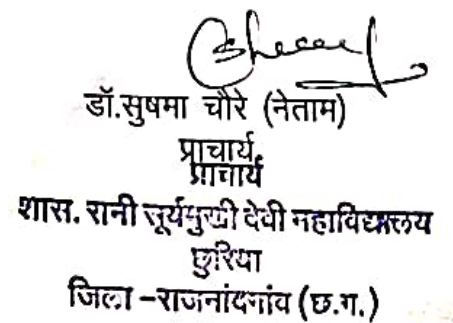 डॉ.सुषमा चौरे (नेताम)
प्राचार्य
प्राचार्य
शास. रानी सूर्यमुखी देवी महाविद्यालय
छुरिया
जिला -राजनांदगांव (छ.ग.)